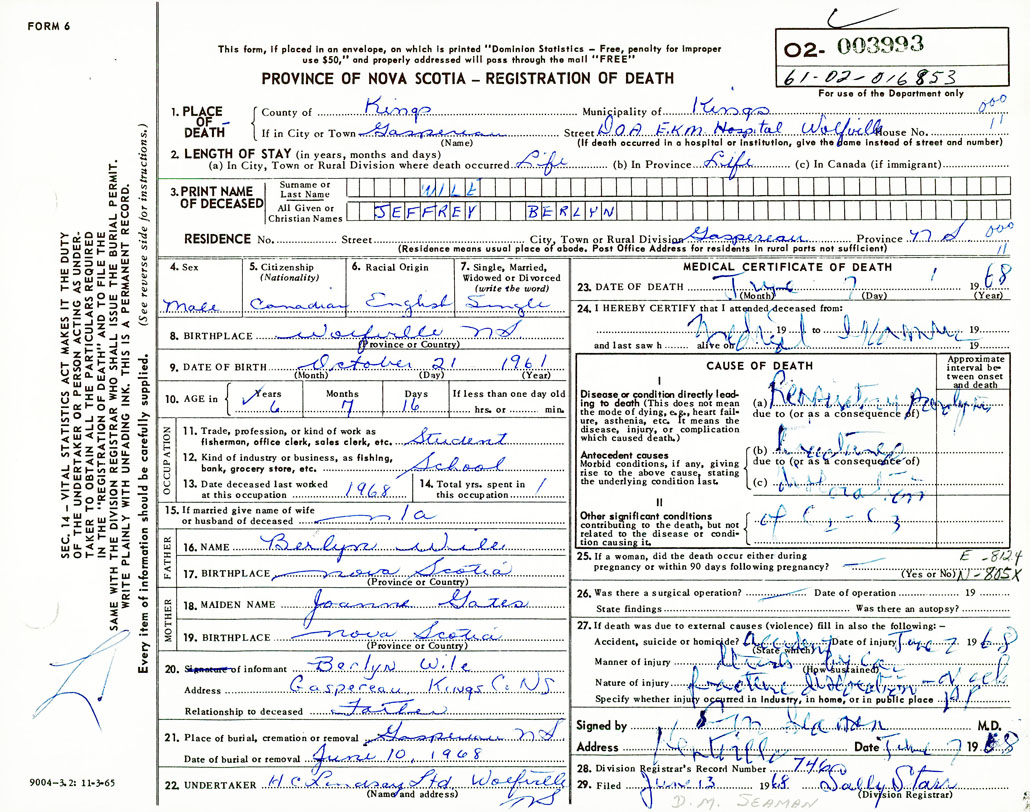 FORM 6
This form, if placed in an envelope, on which is printed "Dominion Statistics – Free, penalty for improper
use $50," and properly addressed will pass through the mail "FREE"
PROVINCE OF NOVA SCOTIA – REGISTRATION OF DEATH
02- 003993
61-02-016853
For use of the Department only
1. PLACE OF DEATH – County of Kings Municipality of Kings 000
If in City or Town Gaspereau Street DOA E.K.M. Hospital Wolfville House No. 11
(Name) (If death occurred in a hospital or institution, give the name instead of street and number)
2. LENGTH OF STAY (in years, months and days)
(a) In City, Town or Rural Division where death occurred Life (b) In Province Life (c) In Canada (if immigrant)
3. PRINT NAME OF DECEASED Surname or Last Name WILE
All Given or Christian Names JEFFREY BERLYN
RESIDENCE No. Street City, Town or Rural Division Gaspereau Province N S 000
(Residence means usual place of abode. Post Office Address for residents in rural parts not sufficient) 11
4. Sex Male
5. Citizenship (Nationality) Canadian
6. Racial Origin English
7. Single, Married, Widowed or Divorced (write the word) Single
8. BIRTHPLACE Wolfville NS
(Province or Country)
9. DATE OF BIRTH October 21 1961
(Month) (Day) (Year)
10. AGE in Years 6 Months 7 Days 16 If less than one day old hrs. or min.
OCCUPATION
11. Trade, profession, or kind of work as
fisherman, office clerk, sales clerk, etc. Student
12. Kind of industry or business, as fishing,
bank, grocery store, etc. School
13. Date deceased last worked at this occupation 1968
14. Total yrs. spent in this occupation 1
15. If married give name of wife
or husband of deceased n/a
FATHER
16. NAME Berlyn Wile
17. BIRTHPLACE Nova Scotia
(Province or Country)
MOTHER
18. MAIDEN NAME Joanne Gates
19. BIRTHPLACE Nova Scotia
(Province or Country)
20. Signature of informant Berlyn Wile
Address Gaspereau Kings Co. NS
Relationship to deceased Father
21. Place of burial, cremation or removal Gaspereau NS
Date of burial or removal June 10, 1968
22. UNDERTAKER H.C. Lindsay Ltd Wolfville
(Name and address) NS
MEDICAL CERTIFICATE OF DEATH
23. DATE OF DEATH June 7 1968
(Month) (Day) (Year)
24. I HEREBY CERTIFY that I attended deceased from:
Medical Examiner 19 to 19
and last saw h alive on 19
CAUSE OF DEATH
Approximate interval between onset and death
I
Disease or condition directly leading to death (This does not mean
the mode of dying, e.g., heart failure, asthenia, etc. It means the
disease, injury, or complication
which caused death.)
(a) Respiratory Paralysis
due to (or as a consequence of)
Antecedent causes
Morbid conditions, if any, giving
rise to the above cause, stating
the underlying condition last.
(b) fracture
due to (or as a consequence of)
(c) dislocation
II
Other significant conditions
contributing to the death, but not
related to the disease or condition causing it.
of C2 - C3
25. If a woman, did the death occur either during
pregnancy or within 90 days following pregnancy? (Yes or No)
E -8124
N-805X
26. Was there a surgical operation? Date of operation 19
State findings Was there an autopsy?
27. If death was due to external causes (violence) fill in also the following: –
Accident, suicide or homicide? Accident Date of injury June 7 1968
(State which)
Manner of injury Struck by car
(How sustained)
Nature of injury fracture dislocation - neck
Specify whether injury occurred in Industry, in home, or in public place
Signed by Seaman M.D.
Address Kentville Date June 7 1968
28. Division Registrar's Record Number 746
29. Filed June 13 1968 Sally Starr
(Division Registrar)
D. M. SEAMAN
SEC. 14 – VITAL STATISTICS ACT MAKES IT THE DUTY
OF THE UNDERTAKER OR PERSON ACTING AS UNDERTAKER TO OBTAIN ALL THE PARTICULARS REQUIRED
IN THE "REGISTRATION OF DEATH" AND TO FILE THE
SAME WITH THE DIVISION REGISTRAR WHO SHALL ISSUE THE BURIAL PERMIT.
WRITE PLAINLY WITH UNFADING INK. THIS IS A PERMANENT RECORD.
Every item of information should be carefully supplied. (See reverse side for instructions.)
9004–3.2: 11-3-65